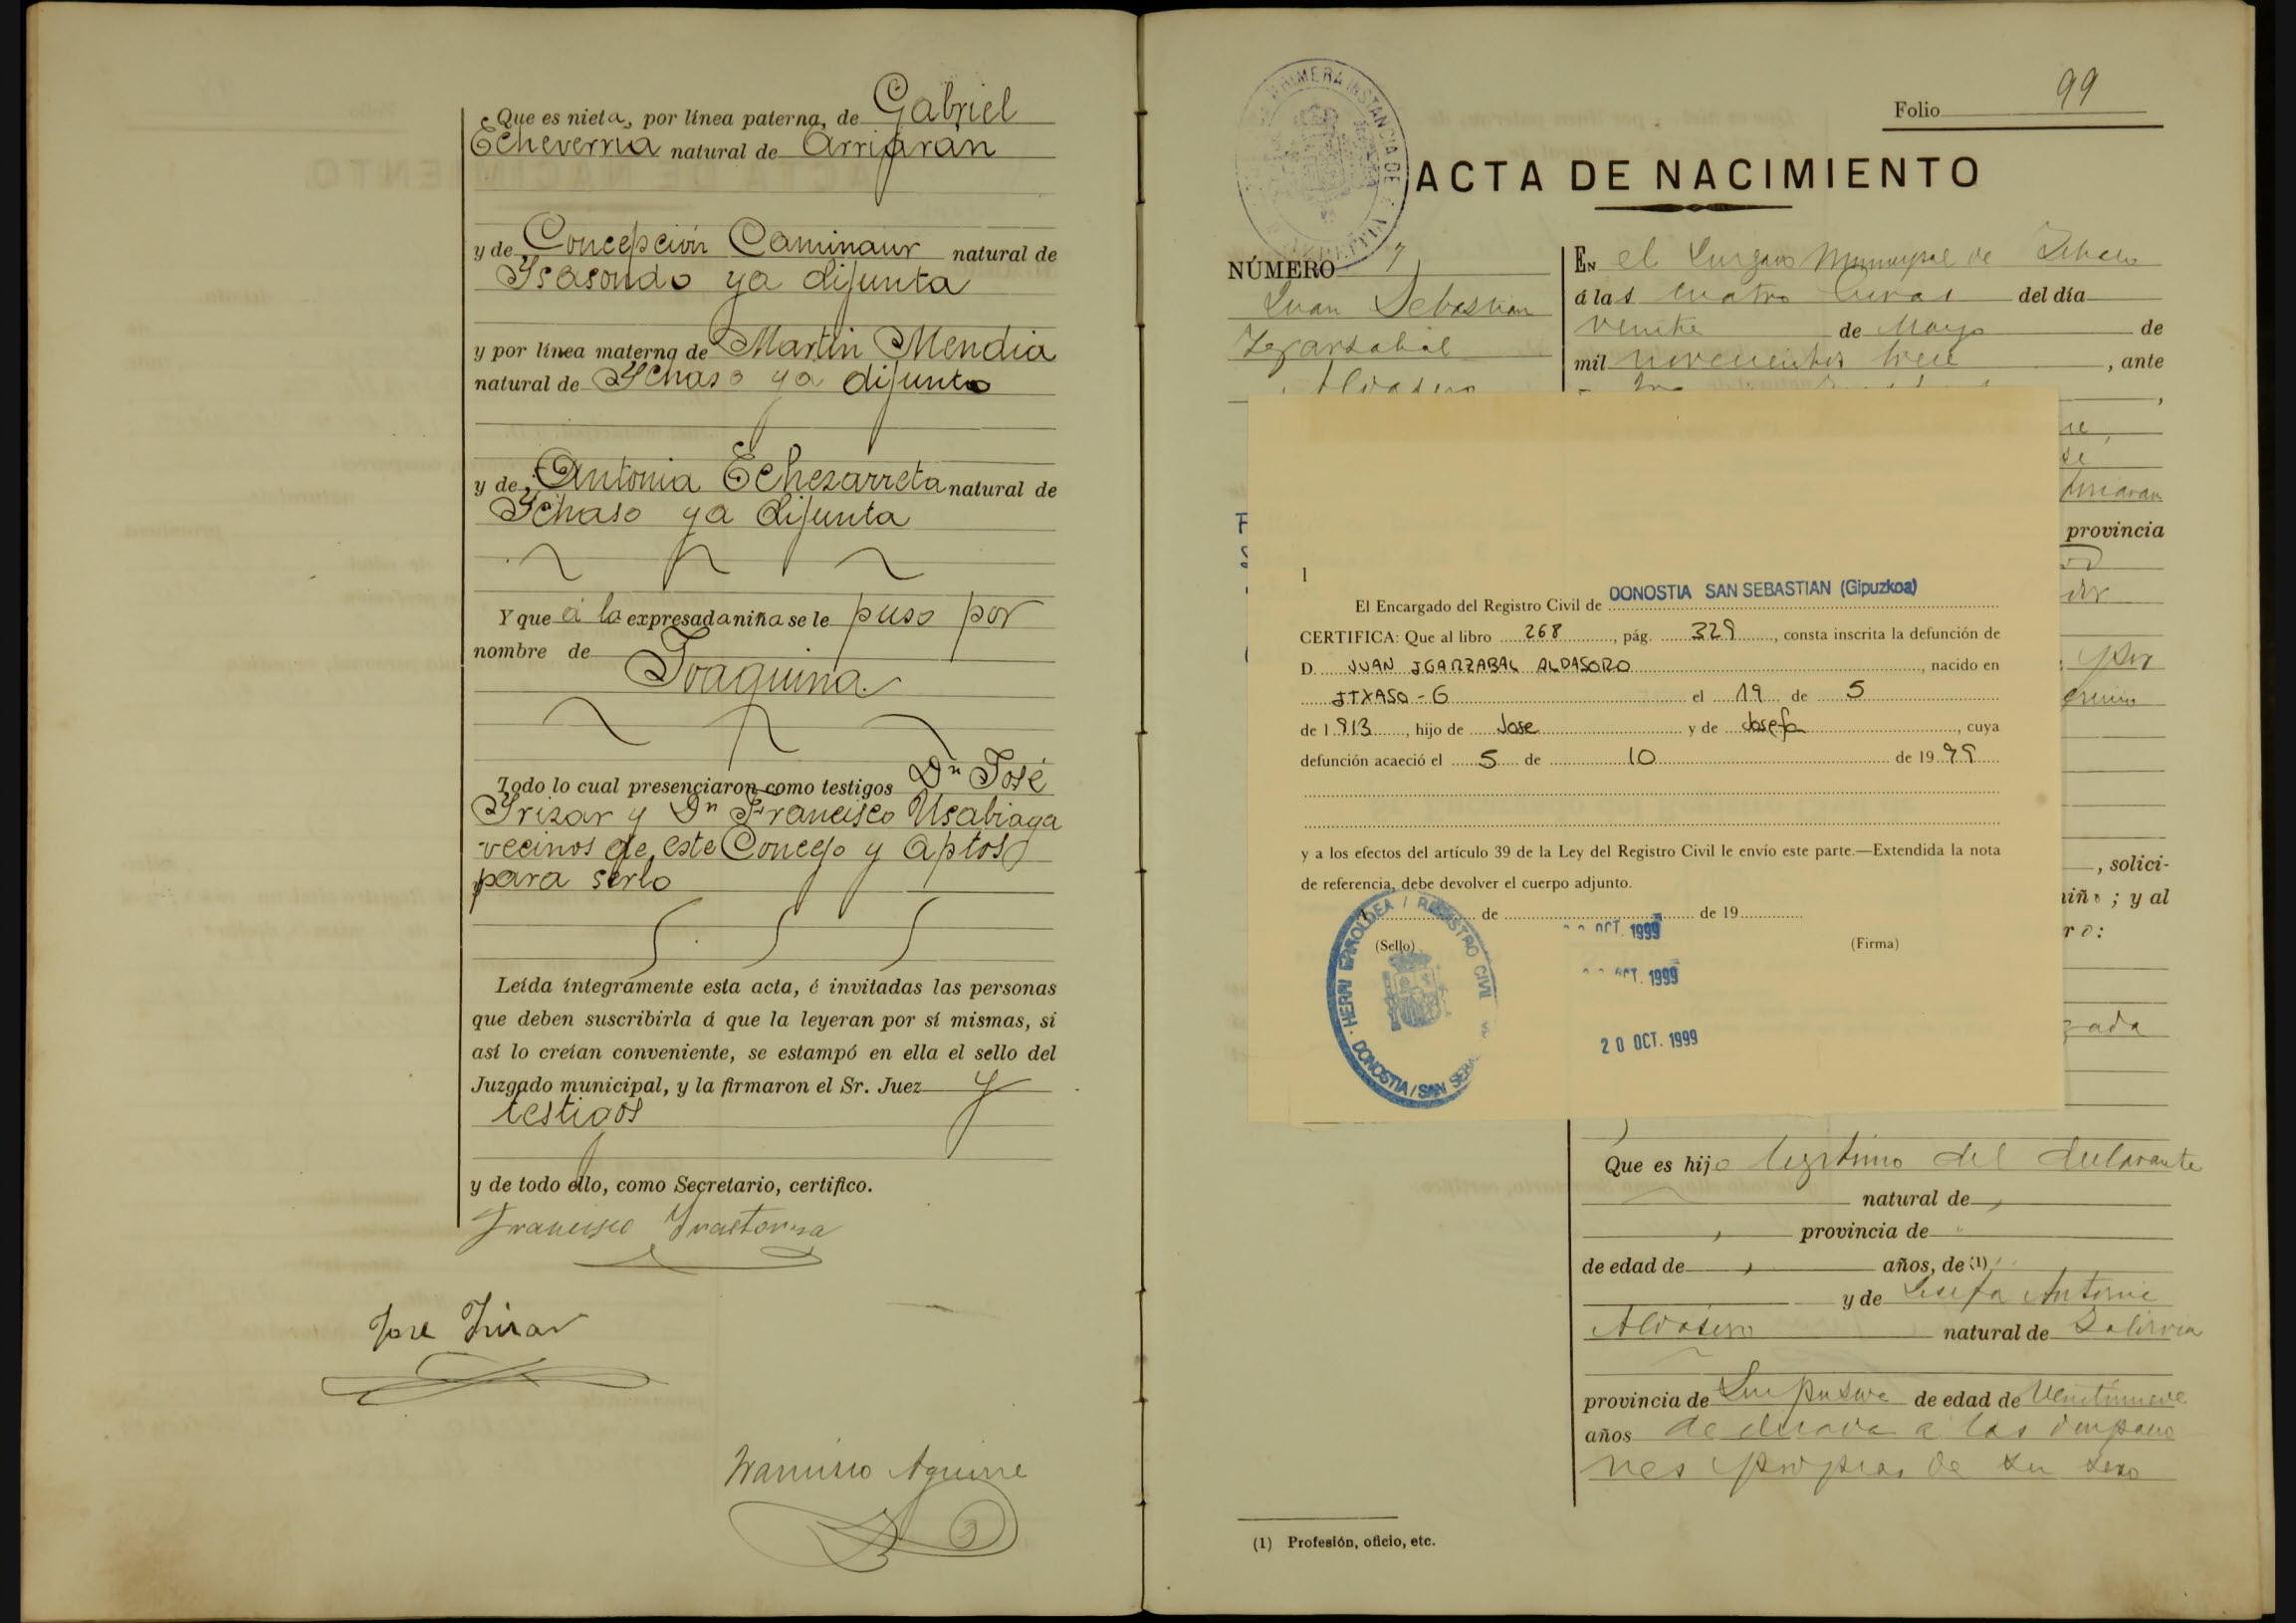 Que es nieta, por línea paterna, de Gabriel
Echeverria natural de Arriaran
y de Concepción Caminaur natural de
Ysasondo ya difunta
y por línea materna de Martin Mendia
natural de Ychaso ya difunto
y de Antonia Echezarreta natural de
Ychaso ya difunta
Y que á la expresada niña se le puso por
nombre de Joaquina
Todo lo cual presenciaron como testigos Dn José
Yrizar y Dn Francisco Usabiaga
vecinos de este Concejo y aptos
para serlo
Leída íntegramente esta acta, é invitadas las personas
que deben suscribirla á que la leyeran por sí mismas, si
así lo creían conveniente, se estampó en ella el sello del
Juzgado municipal, y la firmaron el Sr. Juez y
testigos
y de todo ello, como Secretario, certifico.
Francisco
Jose Yrizar
Francisco Aguirre
Folio 99
PRIMERA INSTANCIA DE
ACTA DE NACIMIENTO
NÚMERO 7
Juan Sebastian
Ygarzabal
Aldasoro
EN el Juzgado Municipal de Ichaso
á las cuatro horas del día
veinte de Mayo de
mil novecientos trece, ante
provincia
por
, solici-
niño; y al
ro:
1
El Encargado del Registro Civil de DONOSTIA SAN SEBASTIAN (Gipuzkoa)
CERTIFICA: Que al libro 268, pág. 329, consta inscrita la defunción de
D. JUAN IGARZABAL ALDASORO, nacido en
ITXASO-G el 19 de 5
de 1913, hijo de Jose y de Josefa, cuya
defunción acaeció el 5 de 10 de 1999
y a los efectos del artículo 39 de la Ley del Registro Civil le envío este parte.—Extendida la nota
de referencia, debe devolver el cuerpo adjunto.
A de de 19
(Sello) (Firma)
OCT. 1999
OCT. 1999
20 OCT. 1999
HERRI ERROLDEA / REGISTRO CIVIL
DONOSTIA / SAN SEBA
Que es hijo legítimo del declarante
natural de
provincia de
de edad de años, de (1)
y de Josefa Antonia
Aldasoro natural de Zaldivia
provincia de Guipuzcoa de edad de Veintinueve
años dedicada a las ocupacio
nes propias de su sexo
(1) Profesión, oficio, etc.